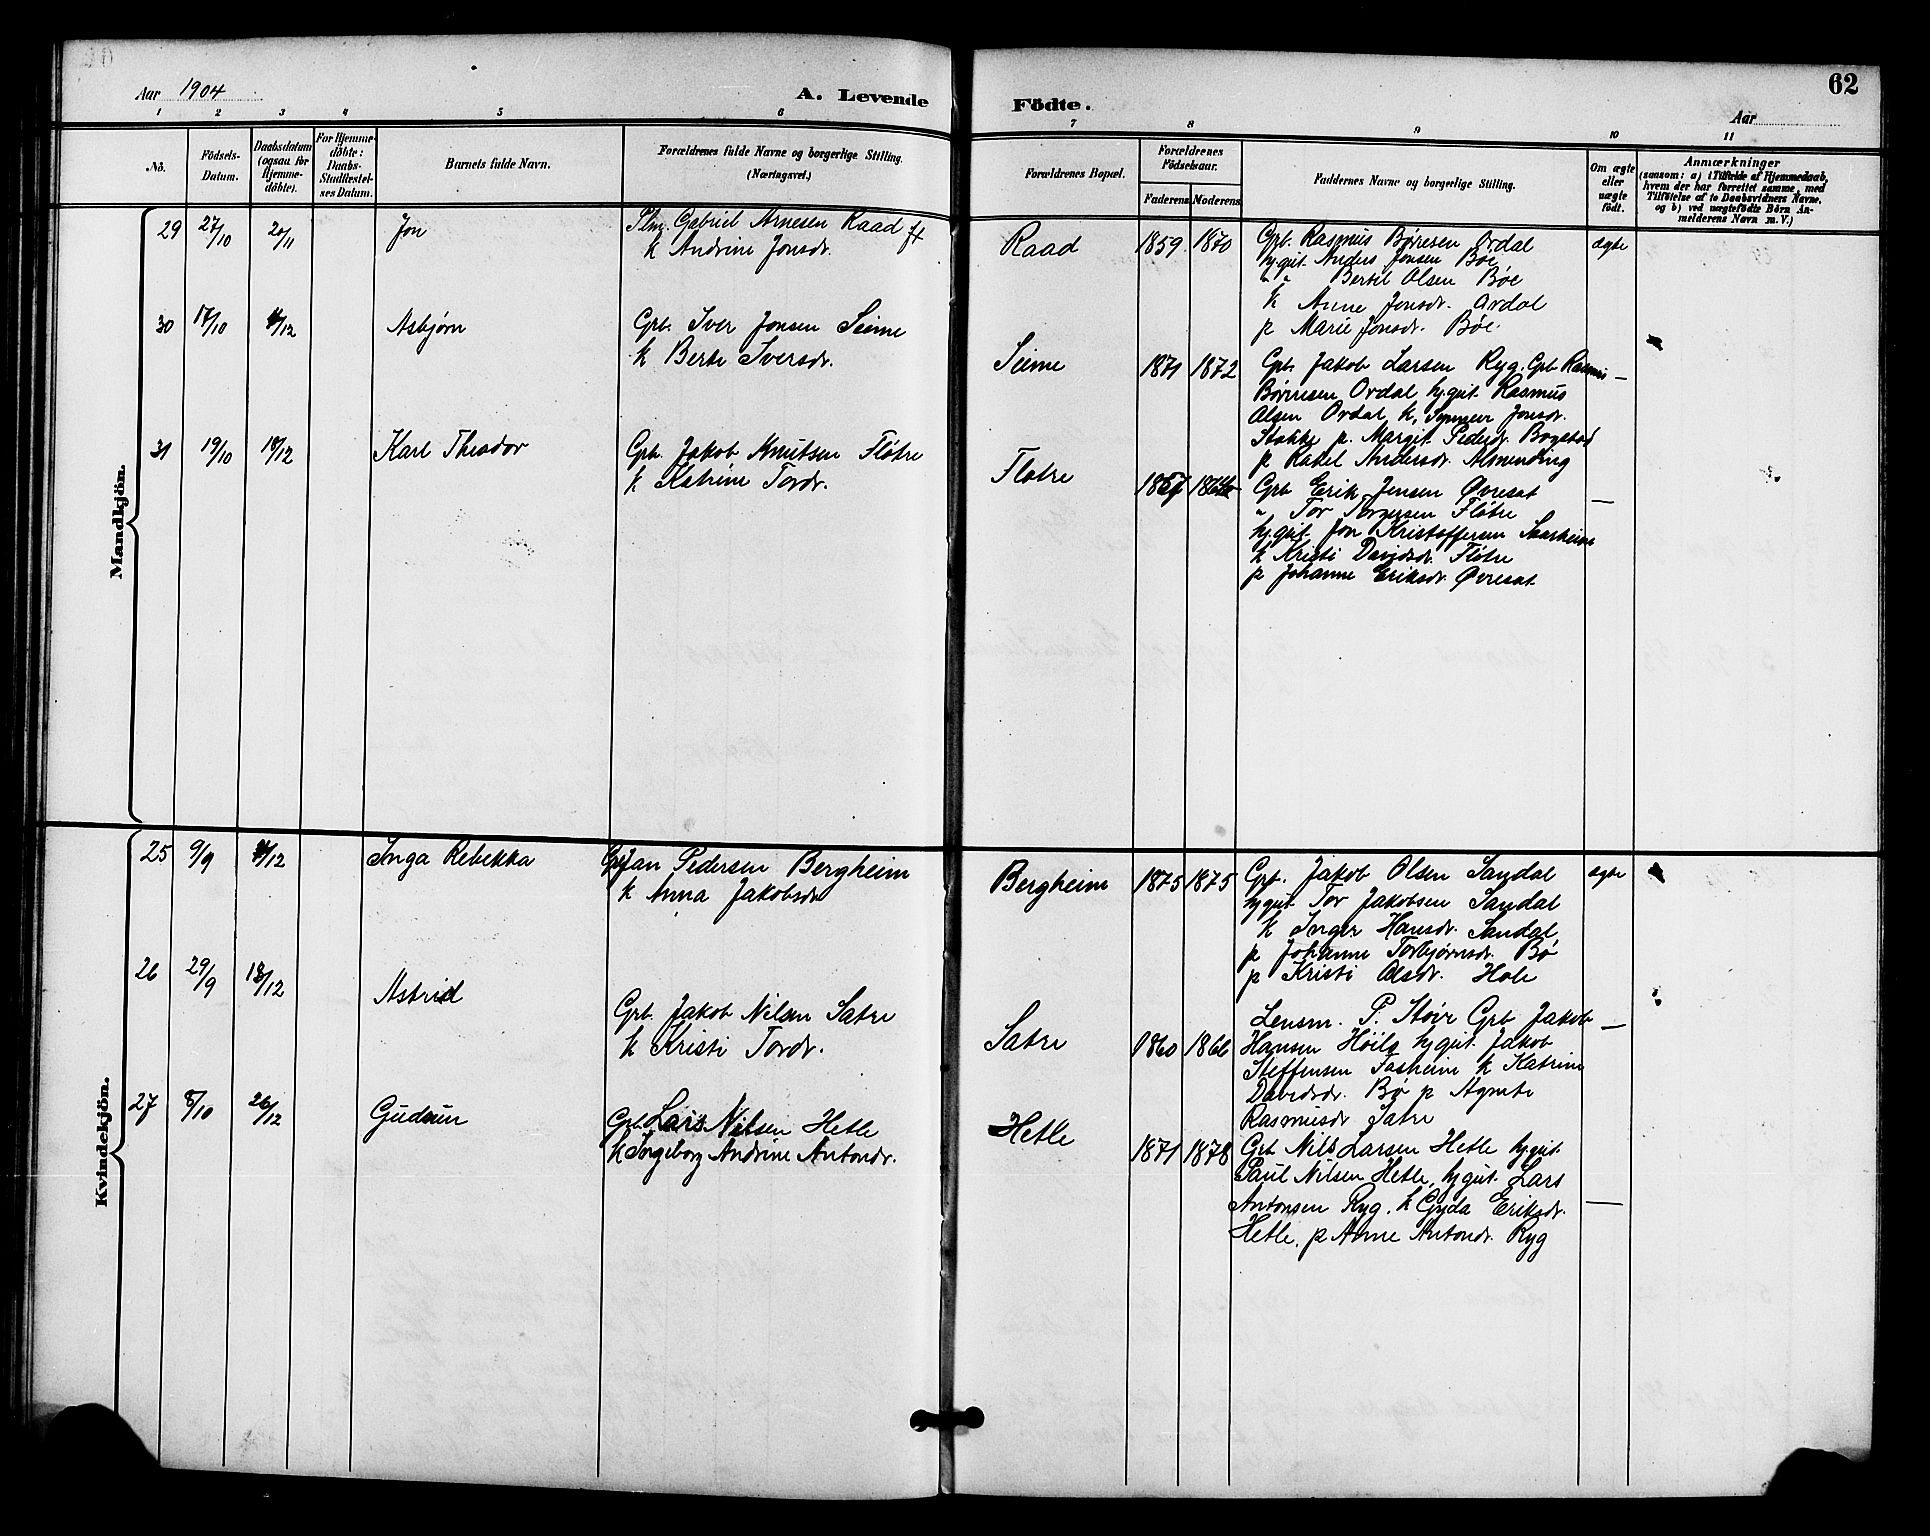 62
Aar 1904
A. Levende Födte.
Aar
1 2 3 4 5 6 7 8 9 10 11
No.
Födsels-
Datum.
Daabsdatum
(ogsaa for
Hjemme-
döbte).
For Hjemme-
döbte:
Daabs-
Stadfæstel-
ses Datum.
Barnets fulde Navn.
Forældrenes fulde Navne og borgerlige Stilling.
(Næringsvei.)
Forældrenes Bopæl.
Forældrenes
Födselsaar.
Faderens Moderens
Faddernes Navne og borgerlige Stilling.
Om ægte
eller
uægte
födt.
Anmærkninger
(saasom: a) i Tilfælde af Hjemmedaab,
hvem der har forrettet samme, med
Tilföielse af to Daabsvidners Navne,
og b) ved uægtefödte Börn An-
melderens Navn m. V.)
Mandkjön.
29 27/10 20/11 Jon
Gabriel Arnesen Raad ft
k Andrine Jonsdr.
Raad 1859 1870
Grb. Rasmus Børresen Ordal
hj.gut. Anders Jonsen Bøe
" " Bertil Olsen Bøe
k Anne Jonsdr. Ordal
p Marie Jonsdr. Bøe.
ægte
30 17/10 4/12 Asbjørn
Grb. Iver Jonsen Seime
k Berte Iversdr.
Seime 1871 1872
Grb. Jakob Larsen Ryg. Grb Rasmus
Børresen Ordal hj.gut. Rasmus
Olsen Ordal k, Jonsdr.
Stokke p. Margit Pedersdr. Bogstad
p Rakel Andersdr. Almending
—
31 19/10 18/12 Karl Theodor
Grb. Jakob Knutsen Fløtre
k Katrine Tordr.
Fløtre 1857
Grb Erik Jensen Øvresat
" Tor Fløtre
hj.gut. Jon Kristoffersen
k Kristi Davidsdr. Fløtre
p Johanne Eriksdr. Øvresat
—
Kvindekjön.
25 9/9 4/12 Inga Rebekka
Grb Jan Pedersen Bergheim
k Anna Jakobsdr
Bergheim 1875 1875
Grb. Jakob Olsen Sandal
hj.gut. Tor Jakobsen Sandal
k Inger Hansdr. Sandal
p Johanne Torbjørnsdr. Bø
p Kristi Olsdr. Hole
ægte
26 29/9 18/12 Astrid
Grb. Jakob Nilsen Satre
k Kristi Tordr.
Satre 1860 1866
Lensm. P. Støve Grb Jakob
Hansen Höilo hj.gut. Jakob
Steffensen Fosheim k Katrine
Davidsdr. Bø p Agnete
Rasmusdr Satre
—
27 8/10 26/12 Gudrun
Grb. Lars Nilsen Hetle
k Ingeborg Andrine Antondr.
Hetle 1871 1878
Grb Nils Larsen Hetle hj.gut.
Paul Nilsen Hetle, hj.gut. Lars
Antonsen Ryg. k Gyda Eriksdr.
Hetle. p Anne Antondr. Ryg
—